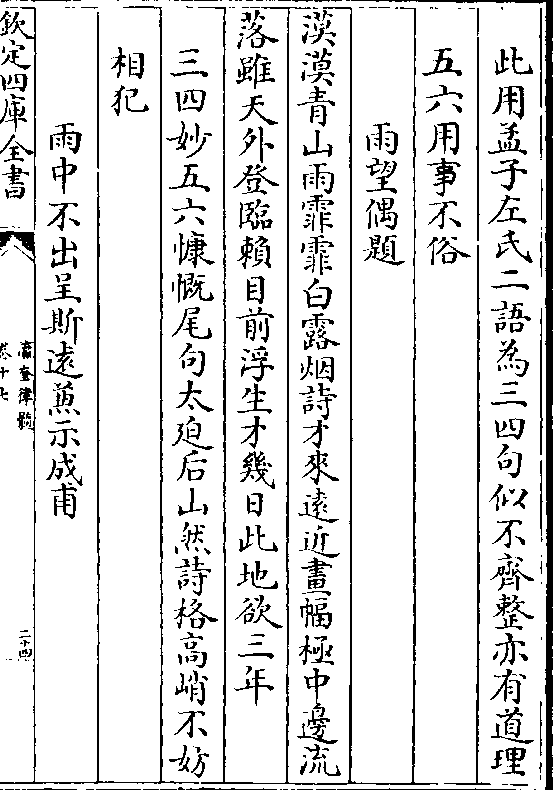 此用孟子左氏二語為三四句似不齊整亦有道理
五六用事不俗
雨望偶題
漠漠青山雨霏霏白露烟詩才來遠近畫幅極中邊流
落雖天外登臨賴目前浮生才幾日此地欲三年
三四妙五六慷慨尾句太廹后山然詩格高峭不妨
相犯
雨中不出呈斯遠蒹示成甫
欽定四庫全書
瀛奎律髓
卷十七
二十四